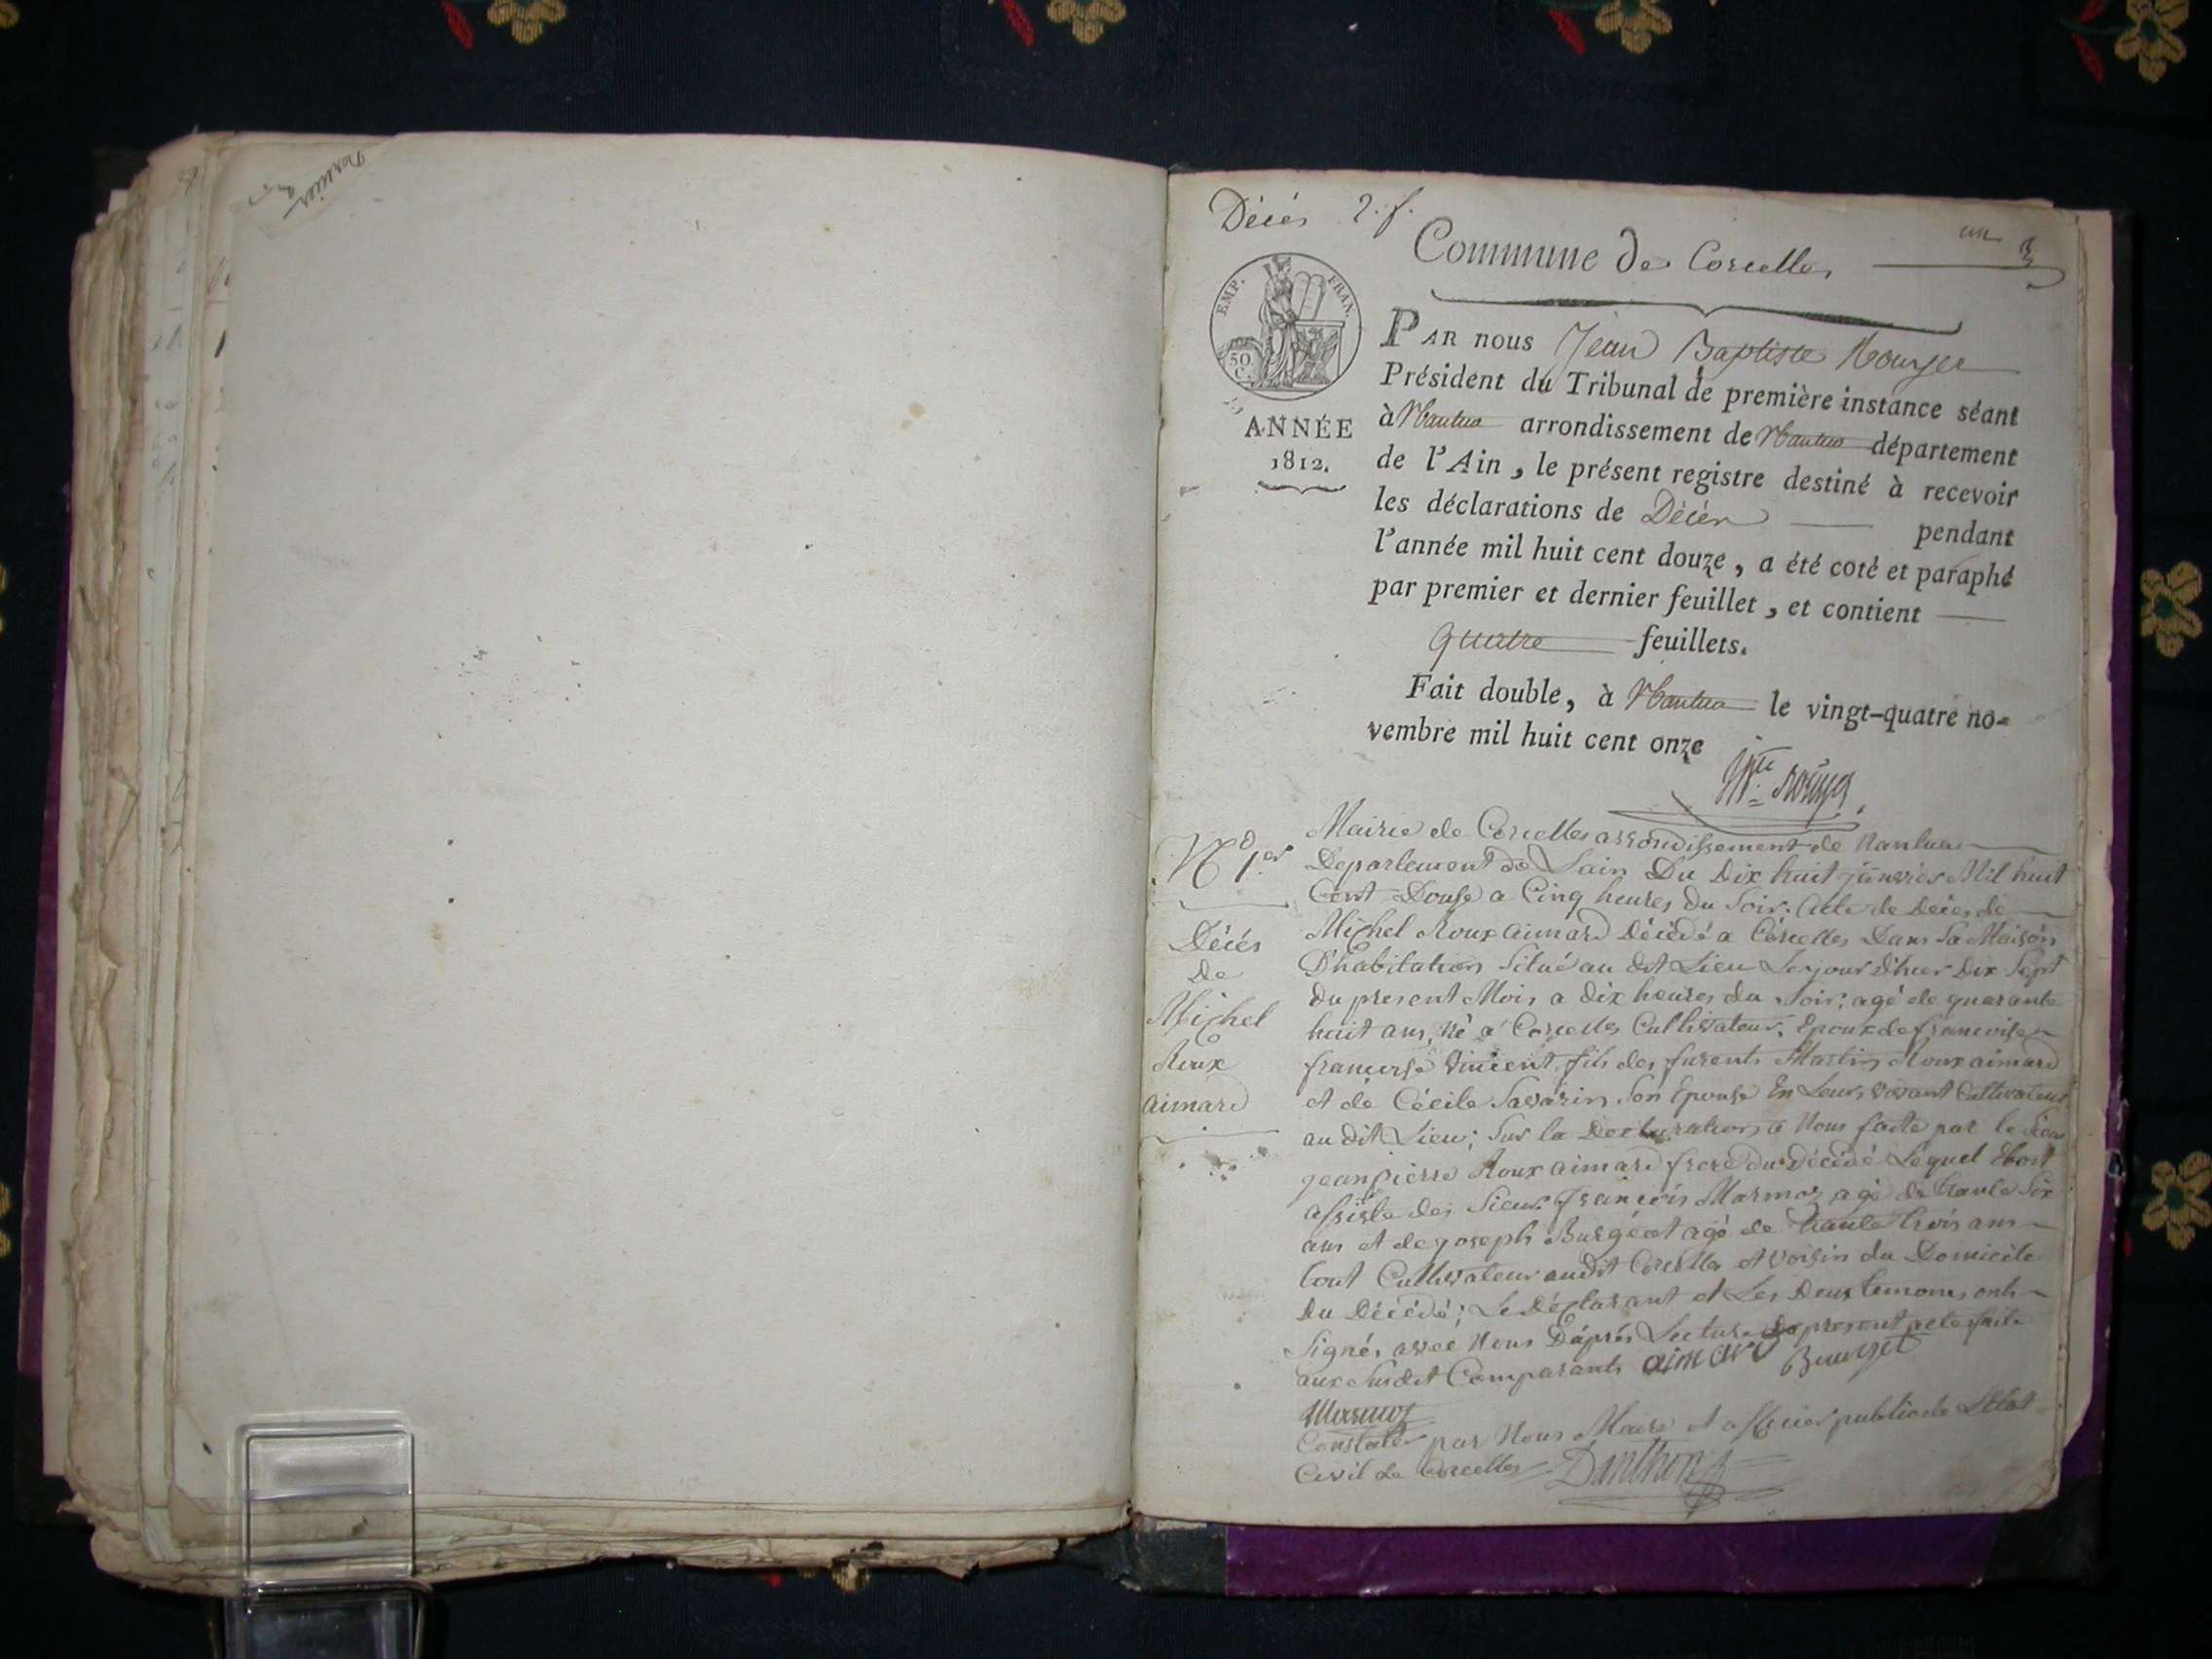 Dernier
Décés 2. f.
un
Commune de Corcelles
EMP. FRAN.
50 C.
ANNÉE
1812.
PAR nous Jean Baptiste Rouyer
Président du Tribunal de première instance séant
à Nantua arrondissement de Nantua département
de l'Ain, le présent registre destiné à recevoir
les déclarations de Décès pendant
l'année mil huit cent douze, a été coté et paraphé
par premier et dernier feuillet, et contient
quatre feuillets.
Fait double, à Nantua le vingt-quatre no-
vembre mil huit cent onze
N° 1er
Décés
De
Michel
Roux
aimard
Mairie de Corcelles arrondissement de Nantua
Departement de Lain Du Dix huit janvier Mil huit
Cent Douse a Cinq heures du Soir; acte de Deces de
Michel Roux aimard Décédé a Corcelles Dans Sa Maison
D'habitation Situé au dit Lieu Le jour d'hier Dix Sept
du present Mois a dix heures du Soir; agé de quarante
huit ans, né a Corcelles Cultivateur; Epoux de francoise
francoise Vincent, fils des furent Martin Roux aimard
et de Cécile Savarin Son Epouse En Leur vivant Cultivateur
au dit Lieu; Sur la Declaration a Nous faite par le Sieur
jean pierre Roux aimard frere du Décédé Lequel
assiste des Sieur francois Marmoz agé de trante Six
ans et de joseph Burgéat agé de trante trois ans
tout Cultivateur audit Corcelles et voisin du Domicile
du Décédé; Le Déclarant et Les Deux temoins onts
Signés avec Nous D'aprés Lecture Du present acte faite
aux Susdit Comparants aimard Bourget
Marmoz
Constaté par Nous Maire et officier public de L'Etat
Civil de Corcelles Danthon